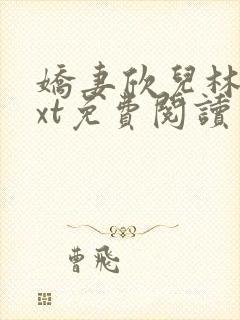 嬌妻欣兒林
xt免費閱讀
曹飛